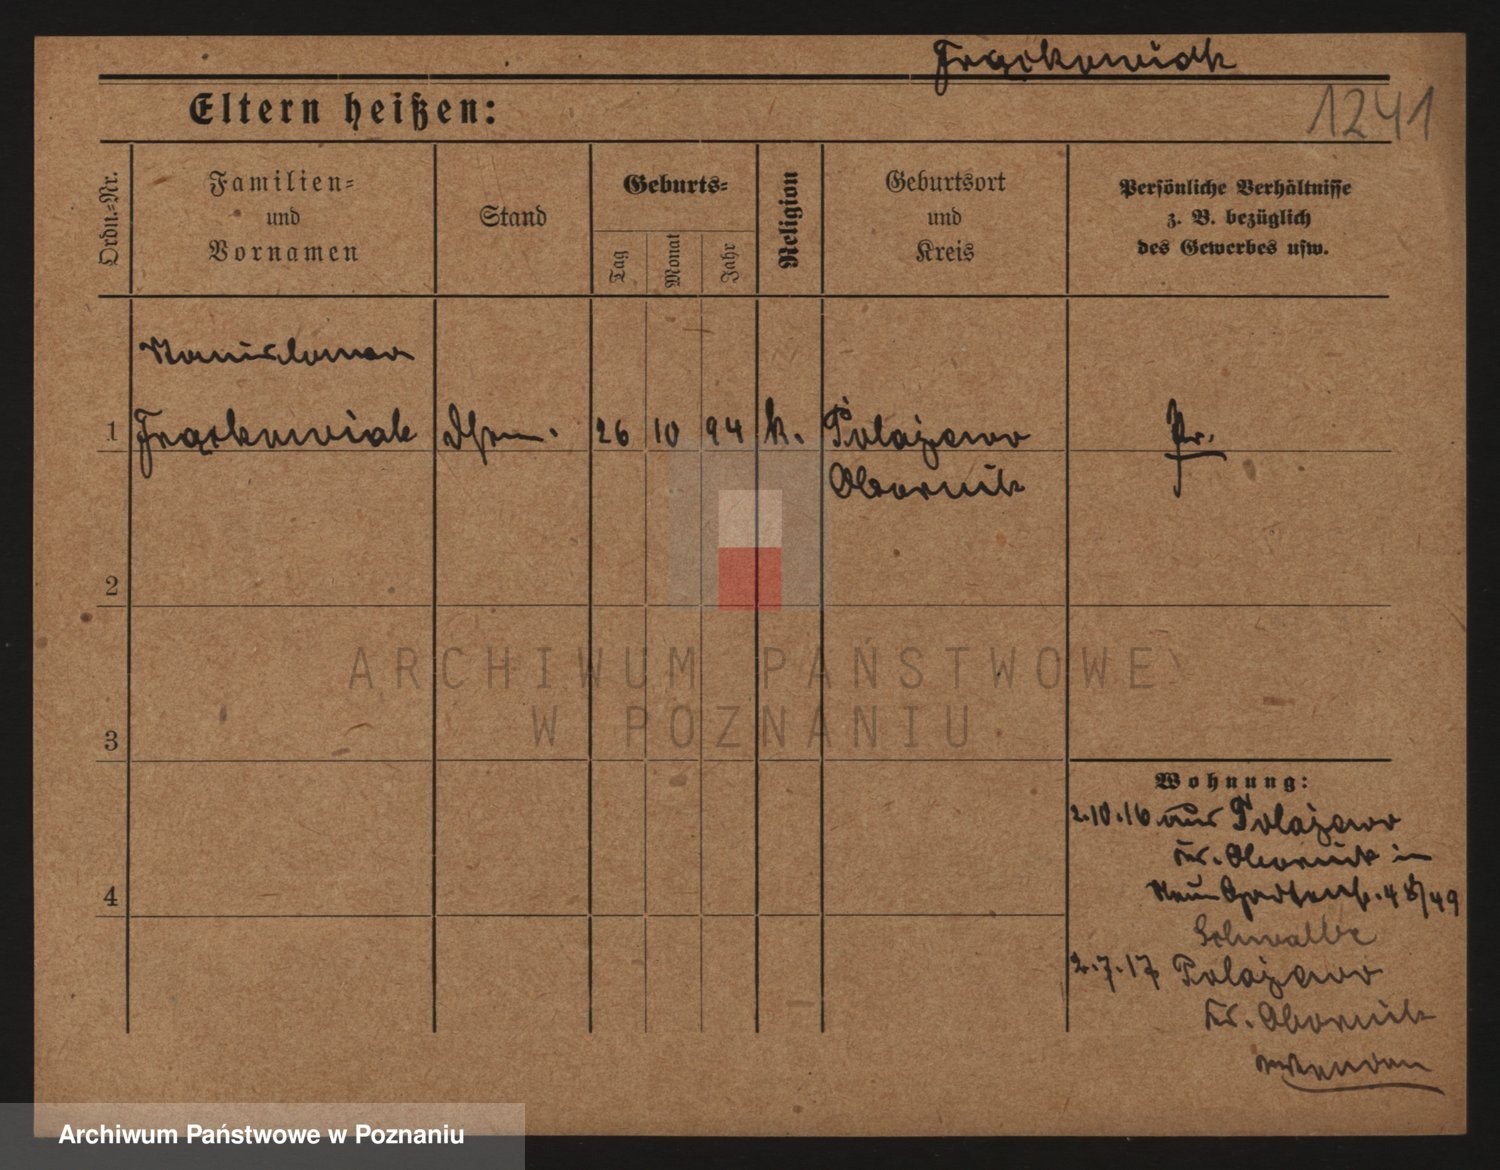 Frąckowiak
1241
Eltern heißen:
Ordn.-Nr.
Familien-
und
Vornamen
Stand
Geburts-
Tag
Monat
Jahr
Religion
Geburtsort
und
Kreis
Persönliche Verhältnisse
z. B. bezüglich
des Gewerbes usw.
Stanislawa
1 Frąckowiak 26 10 94 k. Polajewo Pr.
Obornik
2
3
4
Wohnung:
2.10.16 aus Polajewo
Kr. Obornik in
Neue Gartenstr. 48/49
Schwalbe
2.7.17 Polajewo
Kr. Obornik
ARCHIWUM PAŃSTWOWE
W POZNANIU
Archiwum Państwowe w Poznaniu